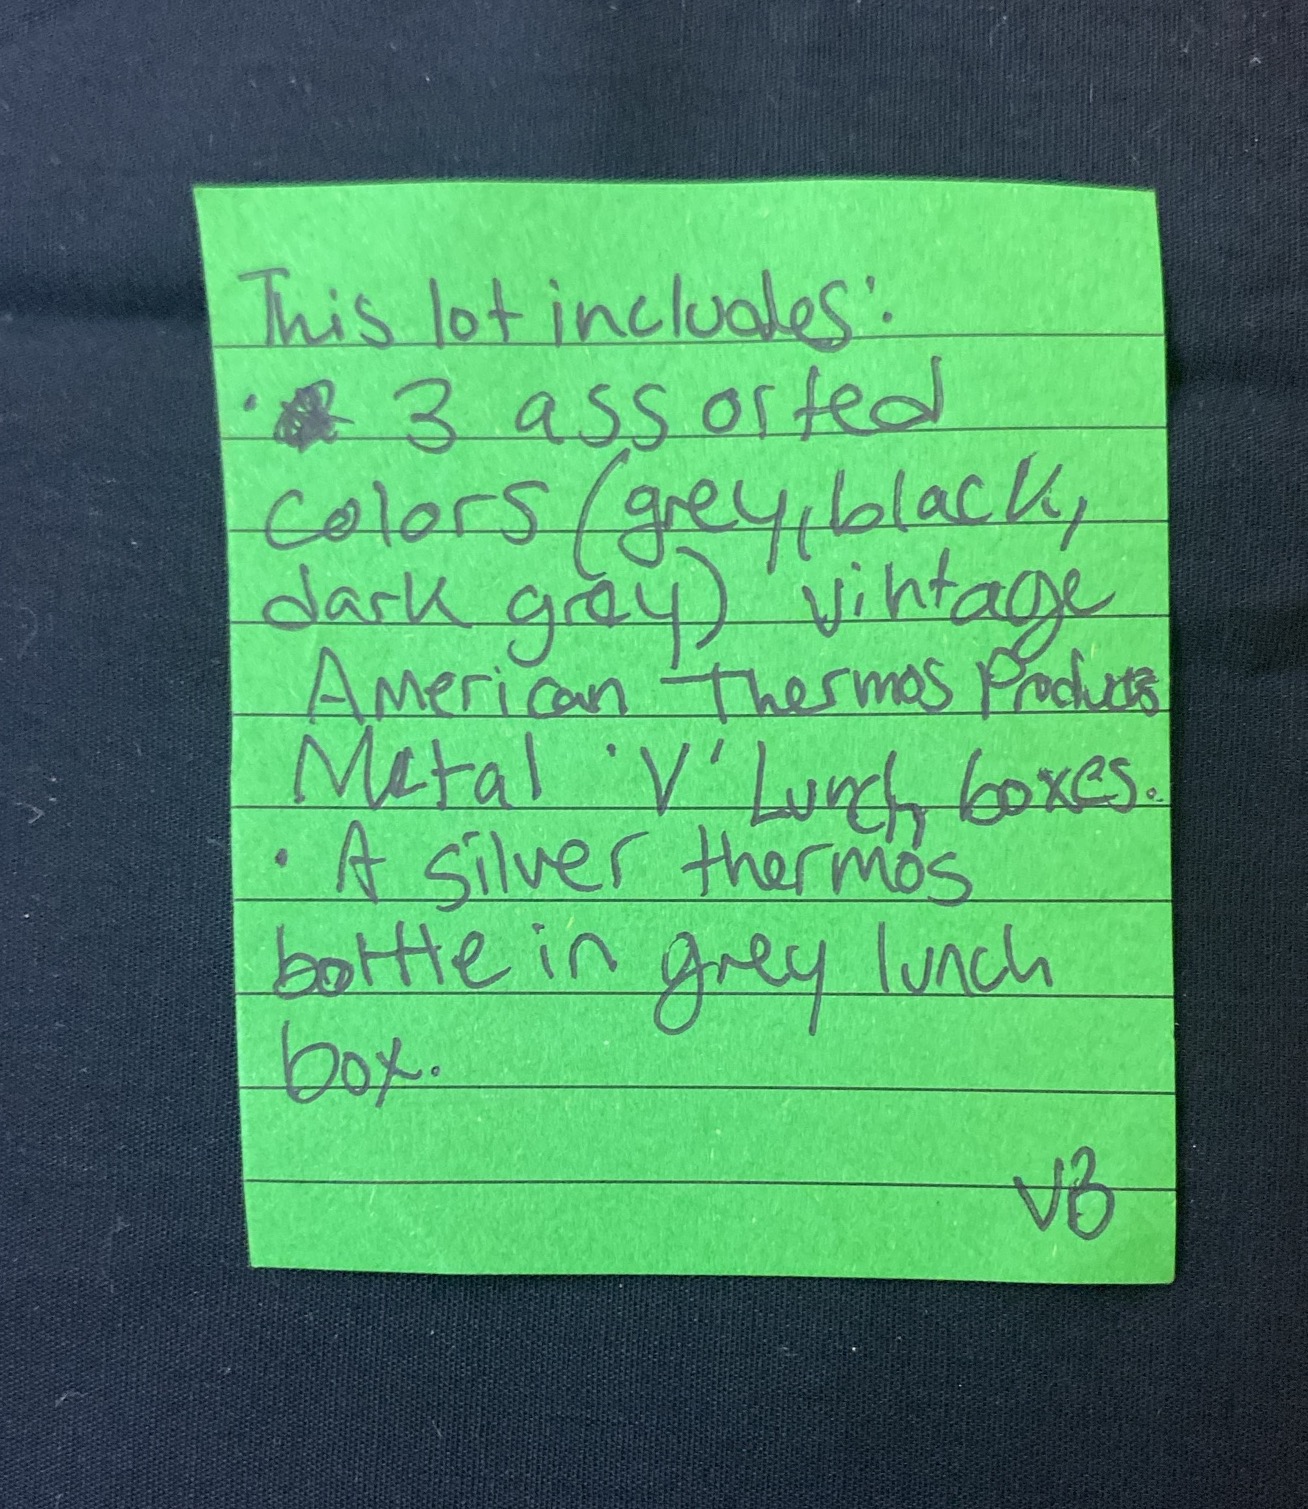 This lot includes:
· 3 assorted
colors (grey, black,
dark grey) vintage
American Thermos Products
Metal 'V' Lunch boxes.
· A silver thermos
bottle in grey lunch
box.
VB